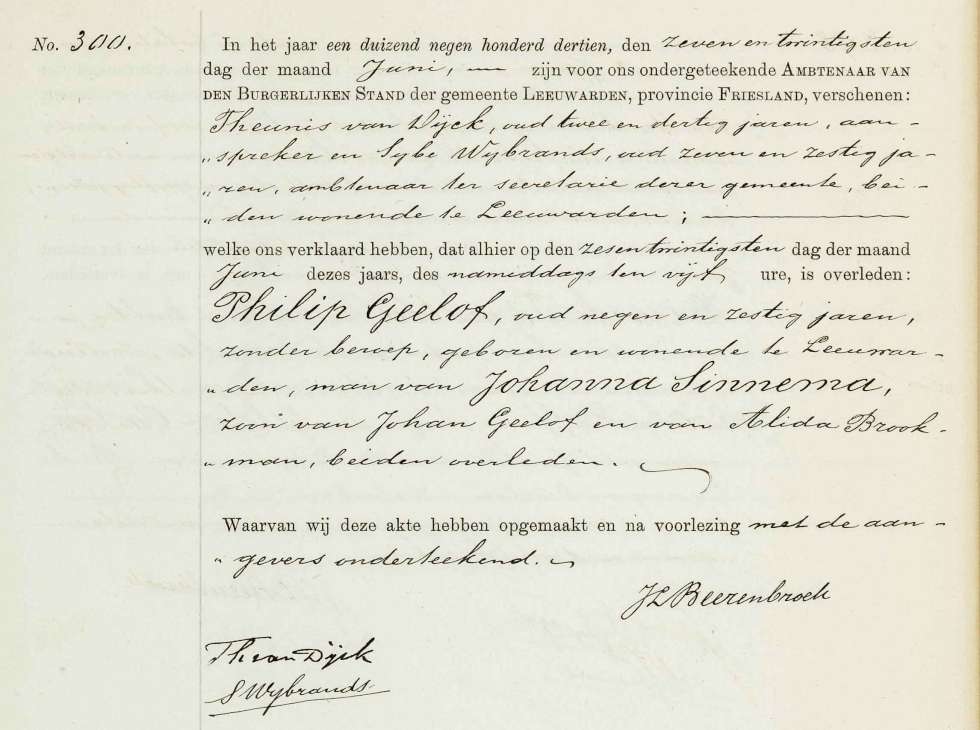 No. 300. In het jaar een duizend negen honderd dertien, den zeven en twintigsten
dag der maand Juni, — zijn voor ons ondergeteekende AMBTENAAR VAN
DEN BURGERLIJKEN STAND der gemeente LEEUWARDEN, provincie FRIESLAND, verschenen:
Theunis van Dijck, oud twee en dertig jaren, aan-
„spreker en Sybe Wybrands, oud zeven en zestig ja-
„ren, ambtenaar ter secretarie dezer gemeente, bei-
„den wonende te Leeuwarden; —
welke ons verklaard hebben, dat alhier op den zesentwintigsten dag der maand
Juni dezes jaars, des namiddags ten vijf ure, is overleden:
Philip Geelof, oud negen en zestig jaren,
zonder beroep, geboren en wonende te Leeuwar-
„den, man van Johanna Sinnema,
zoon van Johan Geelof en van Alida Brook-
„man, beiden overleden.
Waarvan wij deze akte hebben opgemaakt en na voorlezing met de aan-
„gevers onderteekend.
JL Beerenbroek
Th van Dijck
S Wybrands